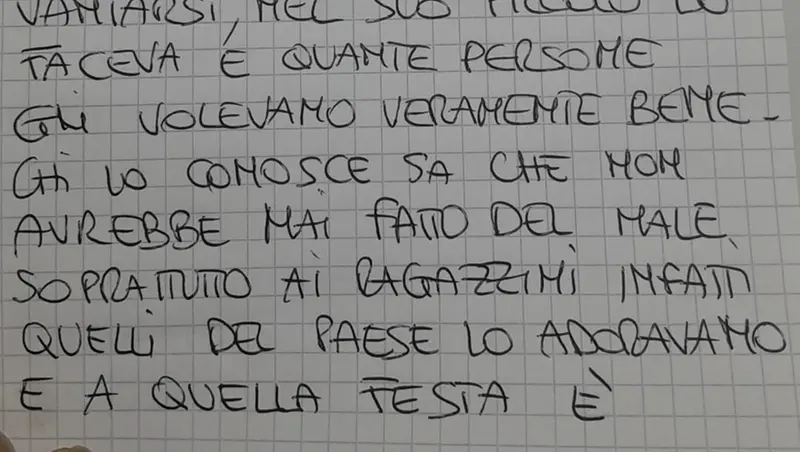 VANTARSI, NEL SUO PICCOLO LO
FACEVA É QUANTE PERSONE
GLI VOLEVANO VERAMENTE BENE-
CHI LO CONOSCE SA CHE NON
AVREBBE MAI FATTO DEL MALE,
SOPRATTUTTO AI RAGAZZINI INFATTI
QUELLI DEL PAESE LO ADORAVANO
E A QUELLA FESTA È